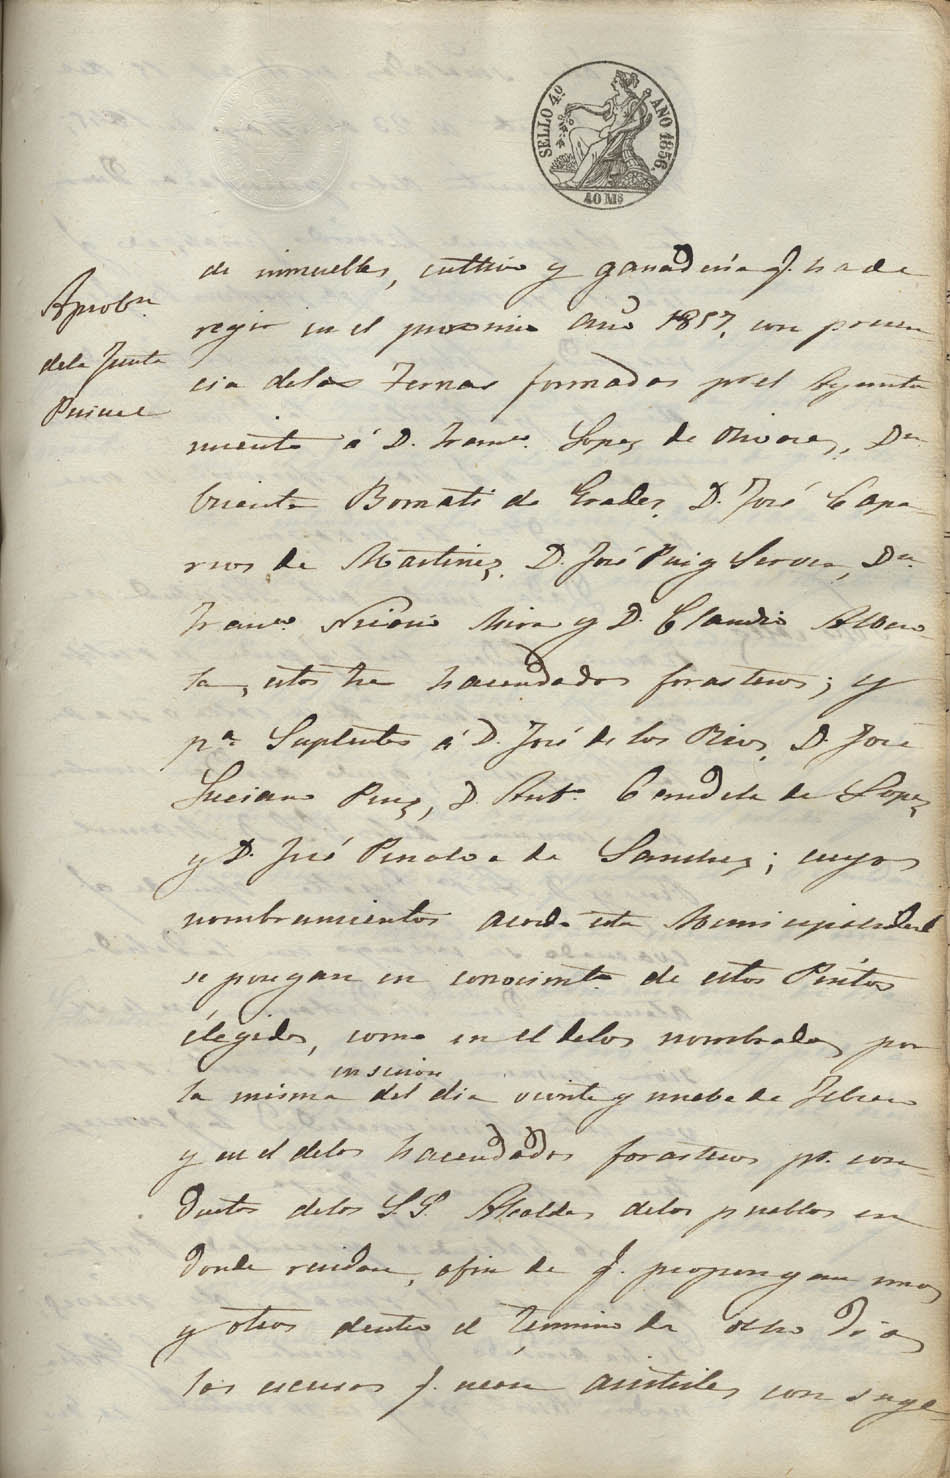 SELLO 4º AÑO 1856.
40 Ms
Aprobn.
dela Junta
Pericial
de inmuebles, cultivo y ganaderia q. ha de
regir en el procsimo año 1857, con presen
cia delas ternas formadas pr el Ayunta
miento á D. Franco. Lopez de Olivares, Dn.
Vicente Bornati de D. José Capa
rros de Martinez, D. José Puig Server, Dn.
Franco. Mira y D. Claudio
ta, estos tres hacendados forasteros; y
pa. Suplentes á D. José de los Rios, D. José
Luciano Ruiz, D. Anto. Candela de Lopez
y D. José Penalva de Sanchez; cuyos
nombramientos acordó esta Municipalidad
se pongan en conocimto. de estos Peritos
élegidos, como en el delos nombrados por
la misma en sesion del dia veinte y nuebe de Febrero
y en el delos hacendados forasteros pr. con
ducto delos S.S. Alcaldes delos pueblos en
donde residan, afin de q. propongan unos
y otros dentro el termino de ocho dias
las escusas q. crean asistirles con suge